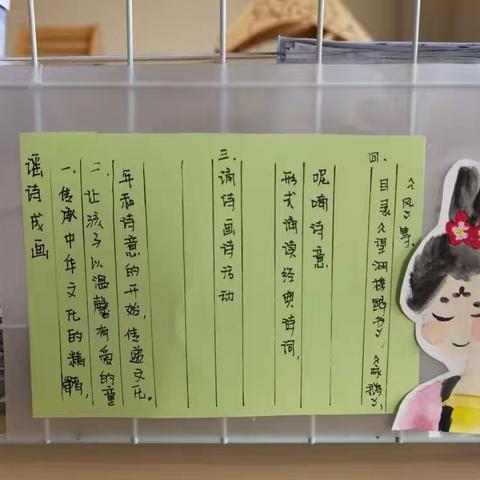 谣诗成画
一、传承中华文化的精髓,
二、让孩子以温馨有爱的童
年和诗意的开始,传递文化。
三、诵诗画诗活动
形式诵读经典诗词,
呢喃诗意
四、目录《望湖楼醉书》、《咏鹅》,
《风》等。